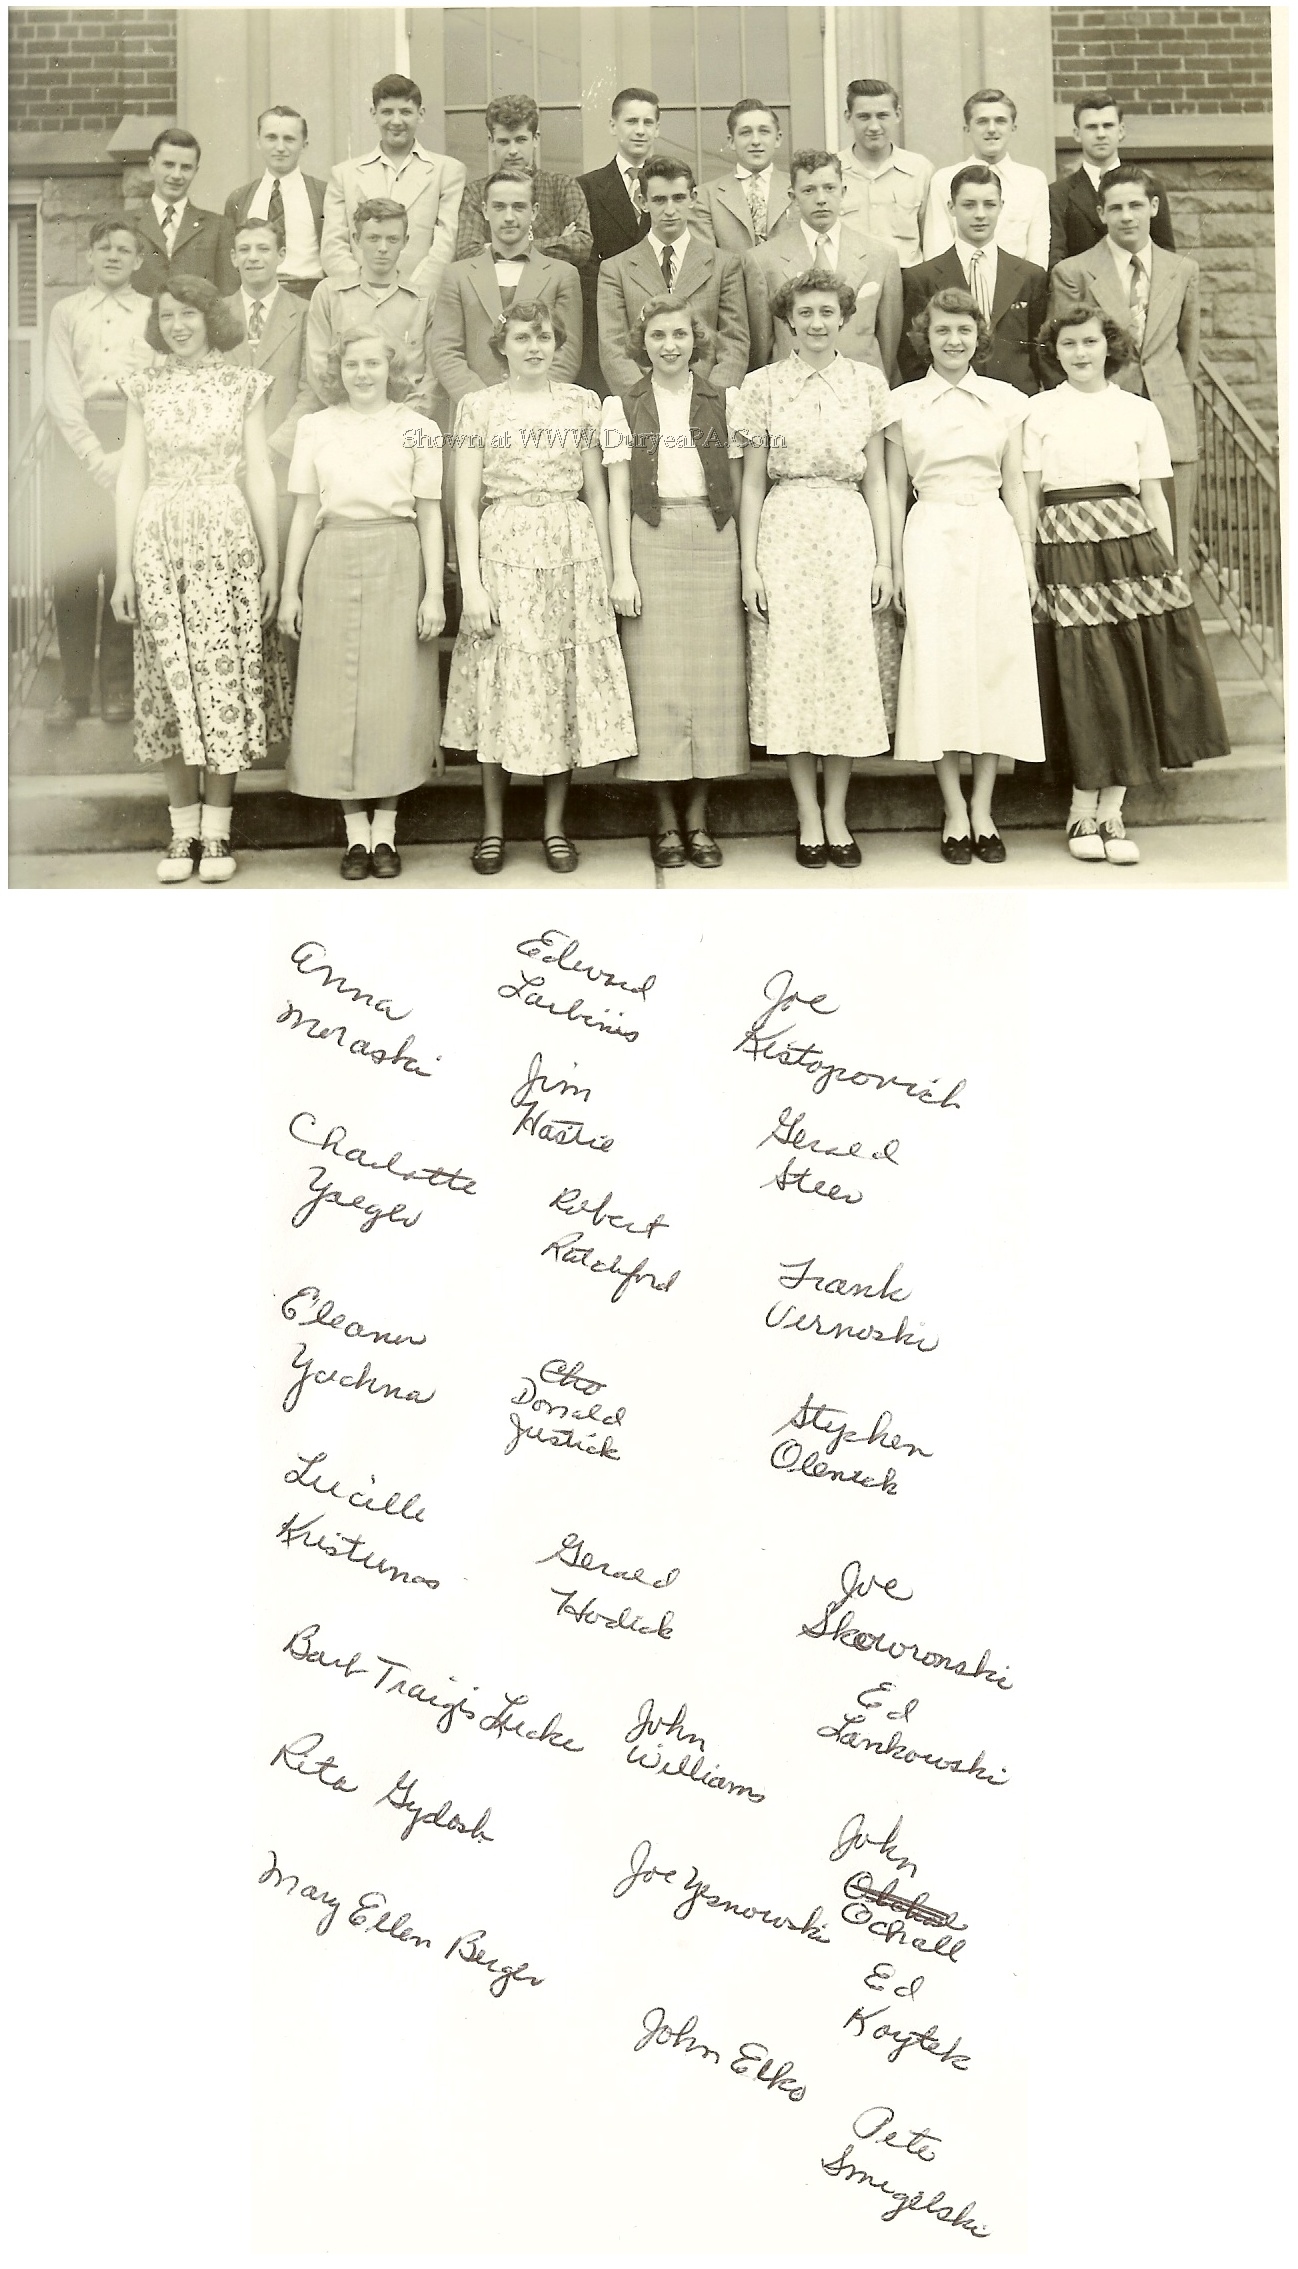 Shown at WWW.DuryeaPA.Com
Anna
Moraski
Charlotte
Yreger
Eleanor
Yuchna
Lucille
Kristunas
Barb Traigis Lucke
Rita Gydosh
Mary Ellen Berger
Edward
Jim
Hastie
Robert
Ratchford
Cho
Donald
Justick
Gerald
Hodick
John
Williams
Joe Yesnowski
John Elko
Joe
Kistopovich
Gerald
Steer
Frank
Vernoski
Stephen
Olenick
Joe
Skowronski
Ed
Lankowski
John
Ochall
Ed
Koytek
Pete
Smigelski